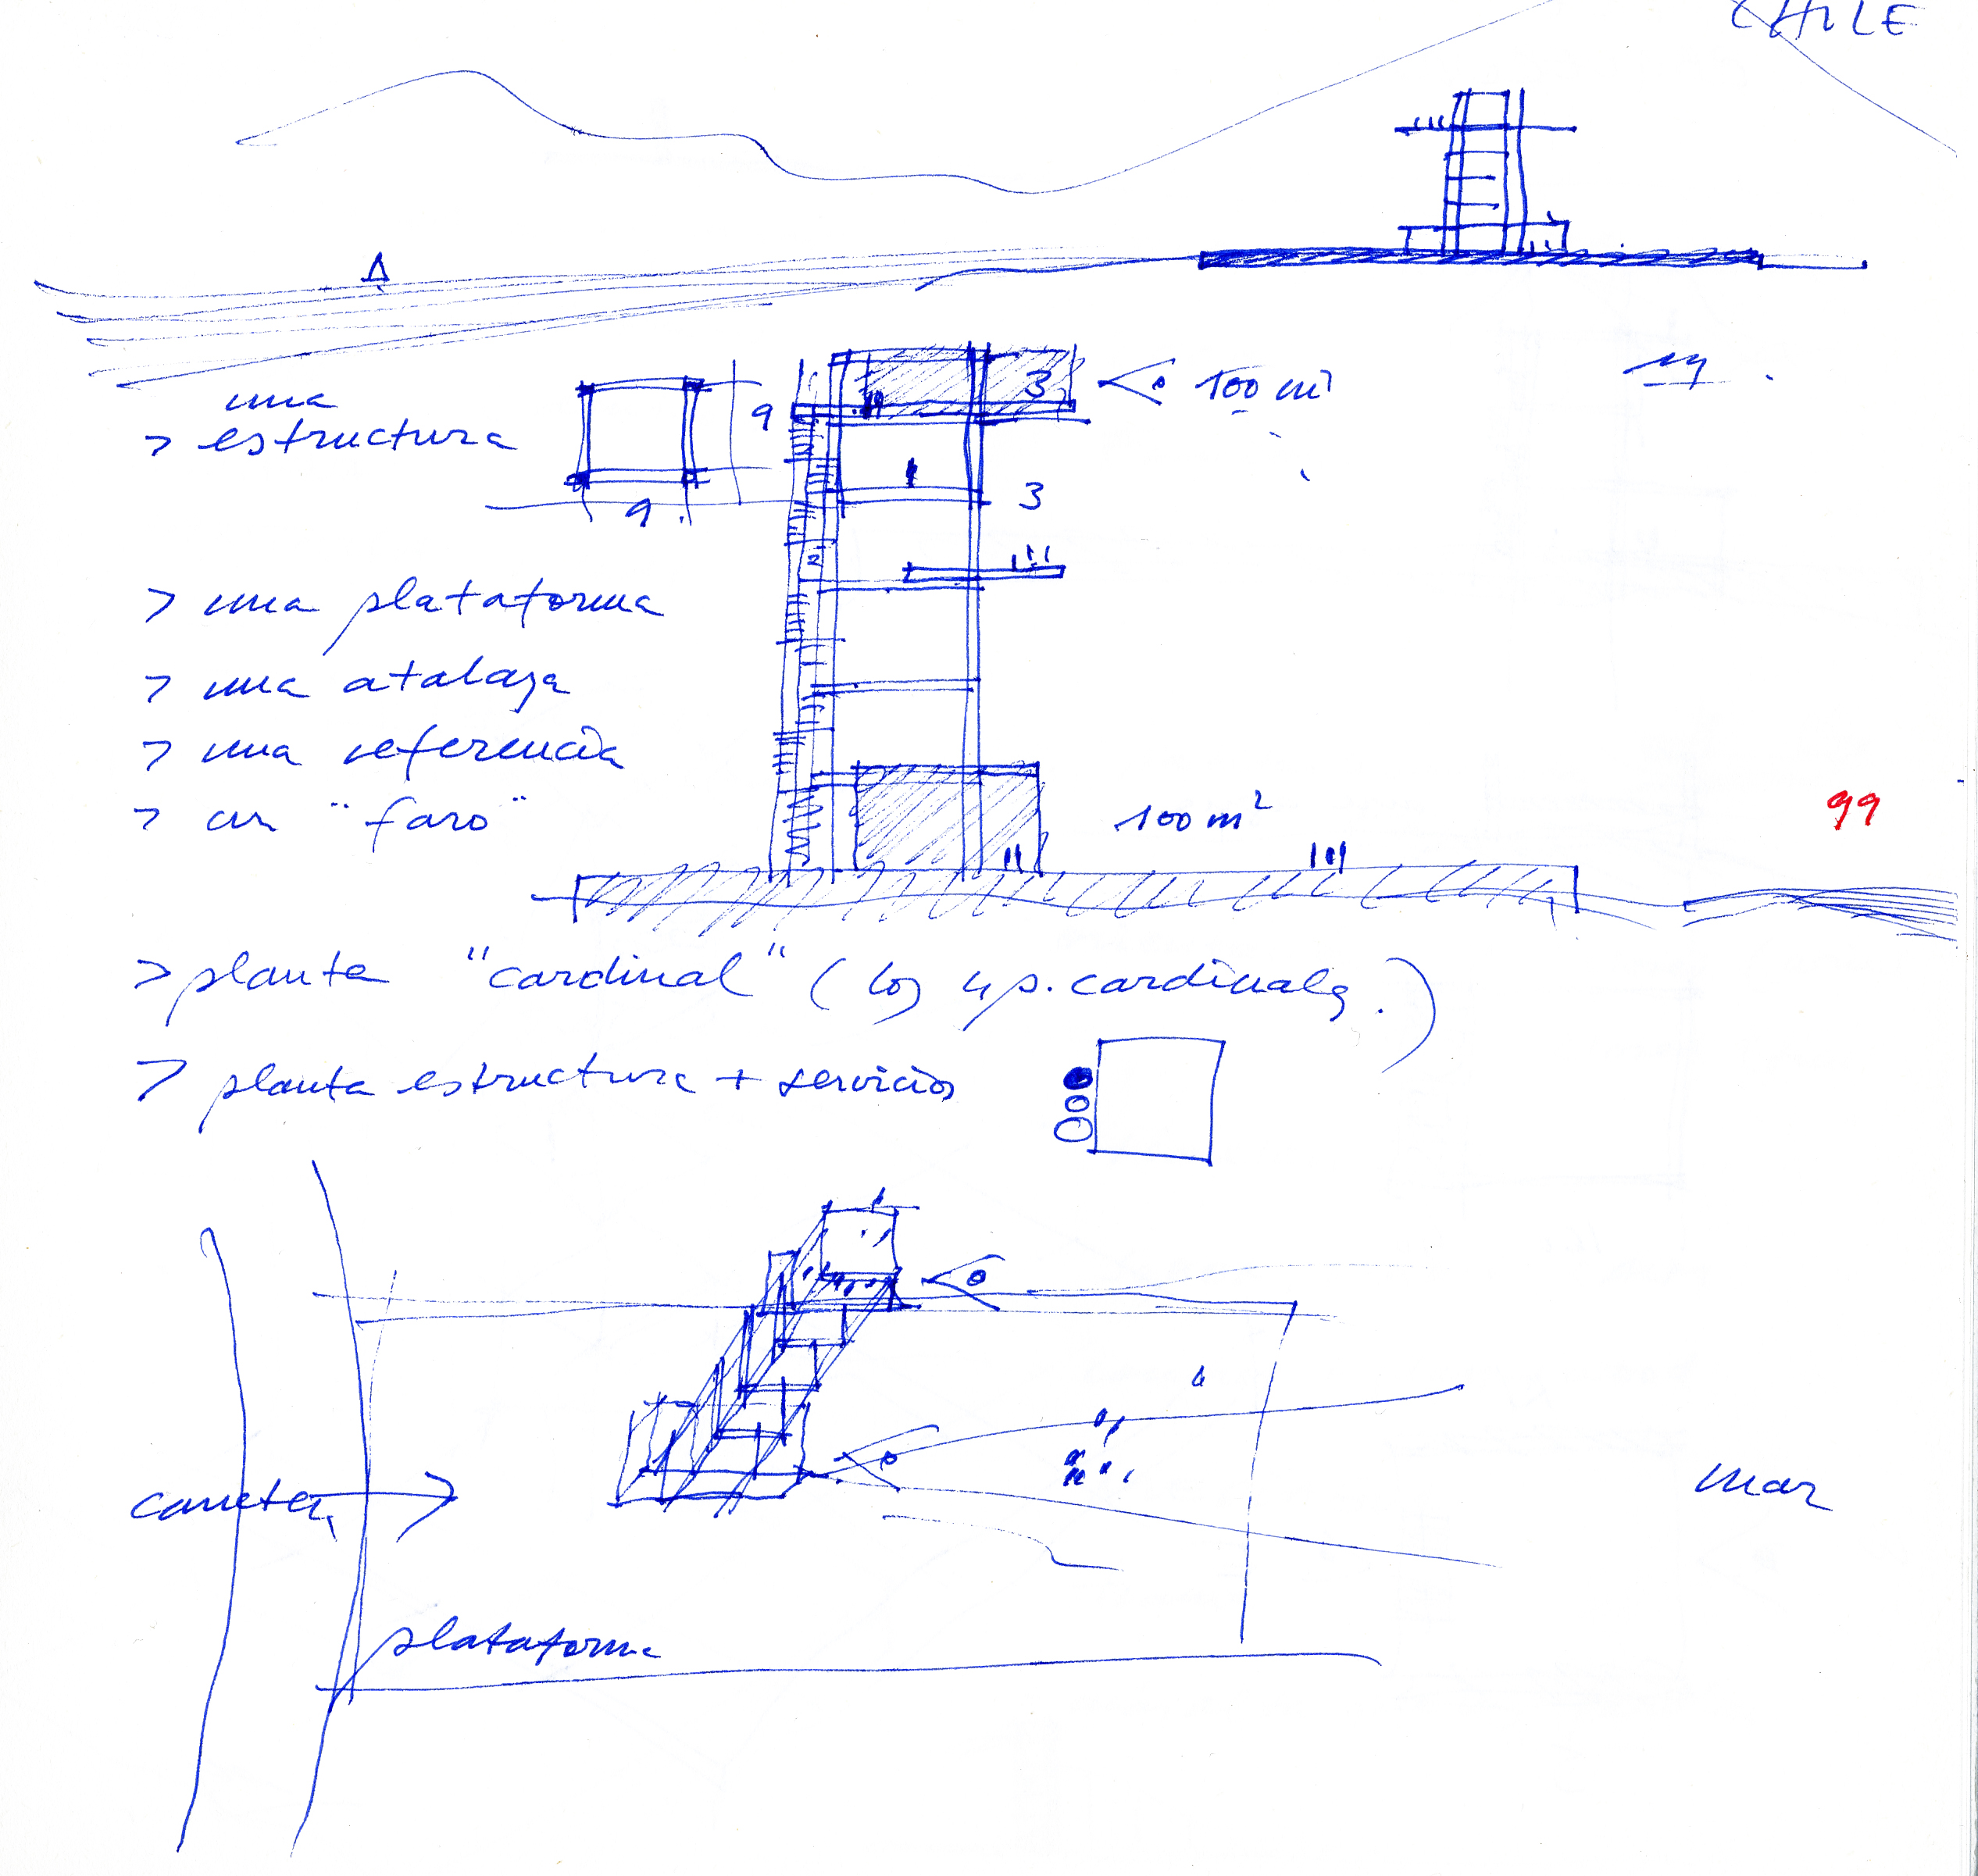 CHILE
una
> estructura
9
9
3
100 m²
3
2
> una plataforma
> una atalaya
> una referencia
> un "faro"
100 m²
99
> planta "cardinal" (los 4 p. cardinales.)
> planta estructura + servicios
carretera
mar
plataforma